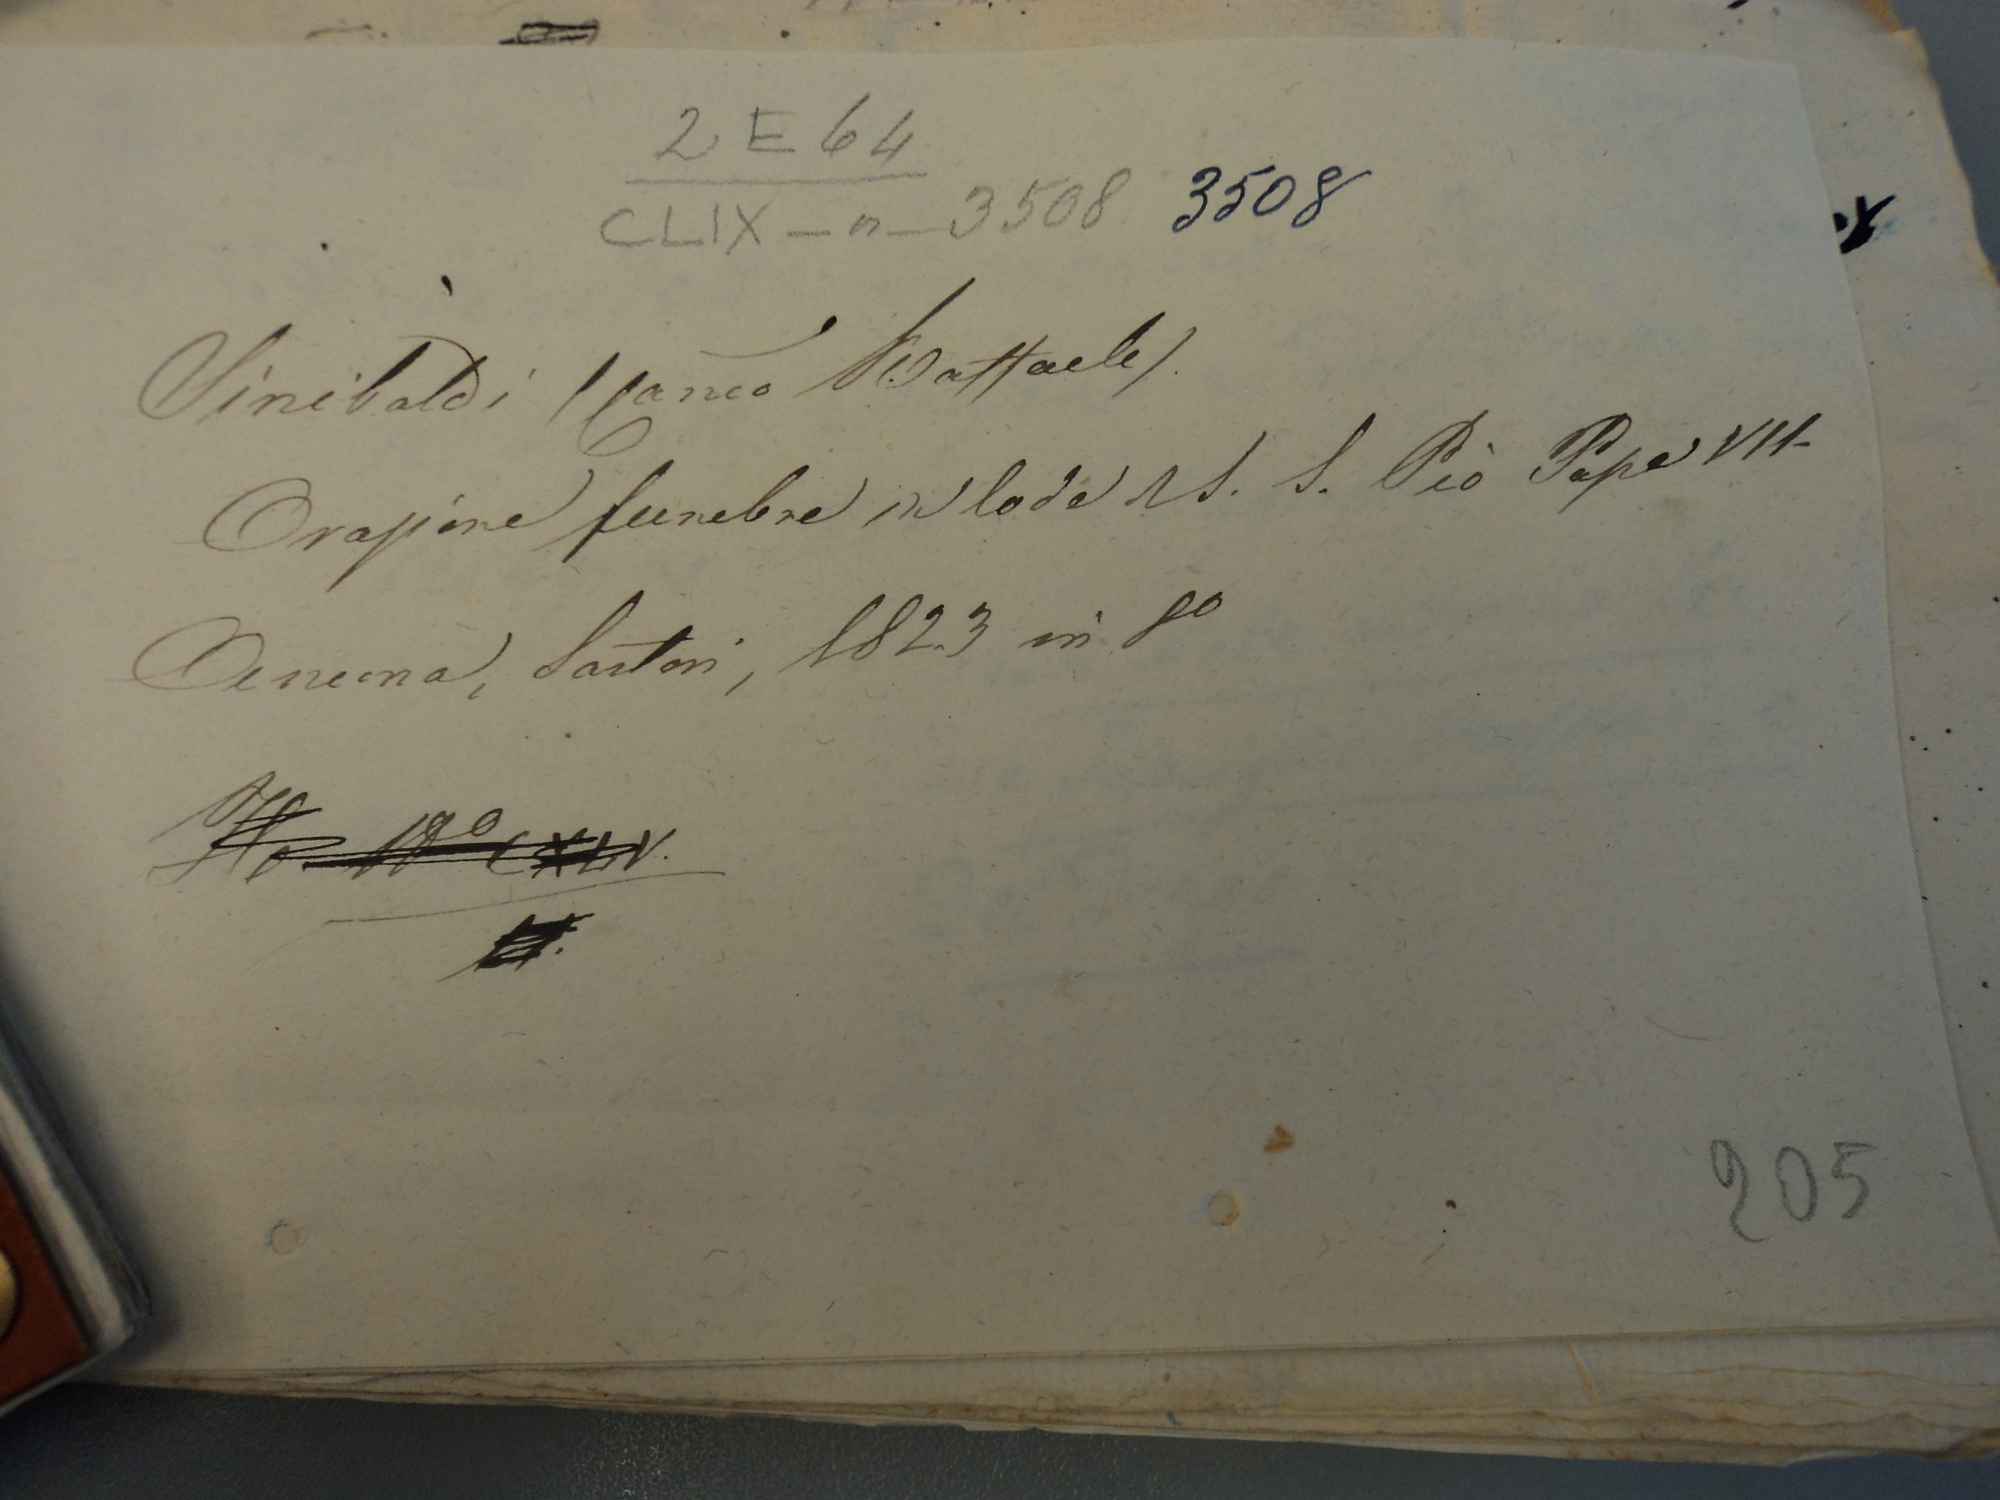 2 E 64
CLIX - n - 3508 3508
Sinibaldi (Canco Raffaele).
Orazione funebre in lode di S. S. Pio Papa VII
Ancona, Sartori, 1823 in 8º
205